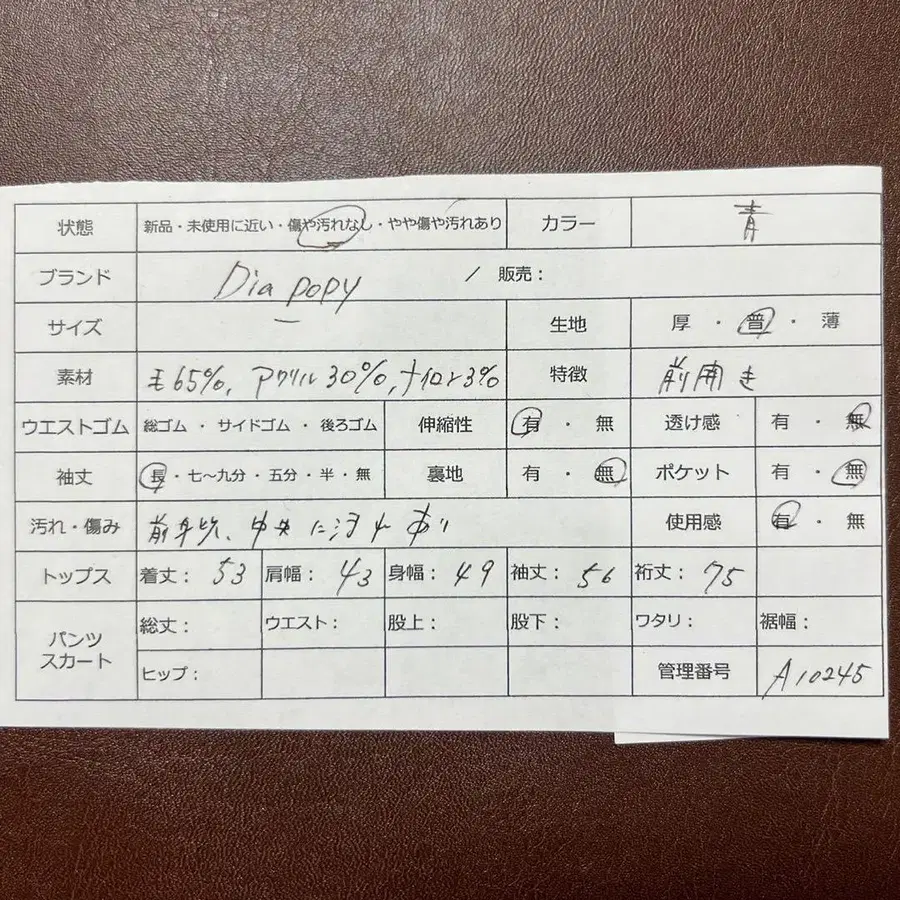 状態 新品・未使用に近い・傷や汚れなし・やや傷や汚れあり カラー 青
ブランド Dia popy / 販売：
サイズ ー 生地 厚・普・薄
素材 毛65%, アクリル30%, ナイロン3% 特徴 前開き
ウエストゴム 総ゴム ・ サイドゴム ・ 後ろゴム 伸縮性 有 ・ 無 透け感 有 ・ 無
袖丈 長・七～九分・五分・半・無 裏地 有 ・ 無 ポケット 有 ・ 無
汚れ・傷み 前身頃、中央に汚れあり 使用感 有 ・ 無
トップス 着丈： 53 肩幅： 43 身幅： 49 袖丈： 56 裄丈： 75
パンツ スカート 総丈： ウエスト： 股上： 股下： ワタリ： 裾幅：
ヒップ： 管理番号 A10245